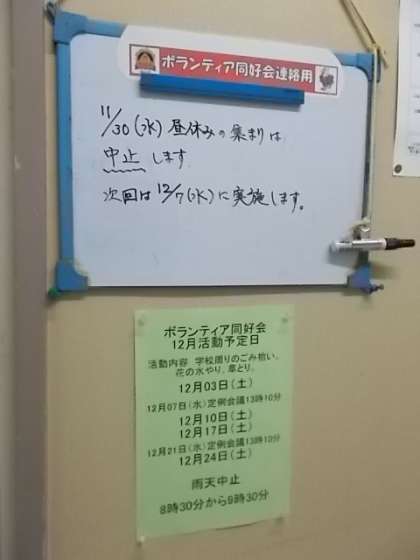 ボランティア同好会連絡用
11/30(水)昼休みの集まりは
中止します
次回は12/7(水)に実施します。
ボランティア同好会
12月活動予定日
活動内容 学校周りのごみ拾い。
花の水やり。草とり。
12月03日(土)
12月07日(水)定例会議13時10分
12月10日(土)
12月17日(土)
12月21日(水)定例会議13時10分
12月24日(土)
雨天中止
8時30分から9時30分